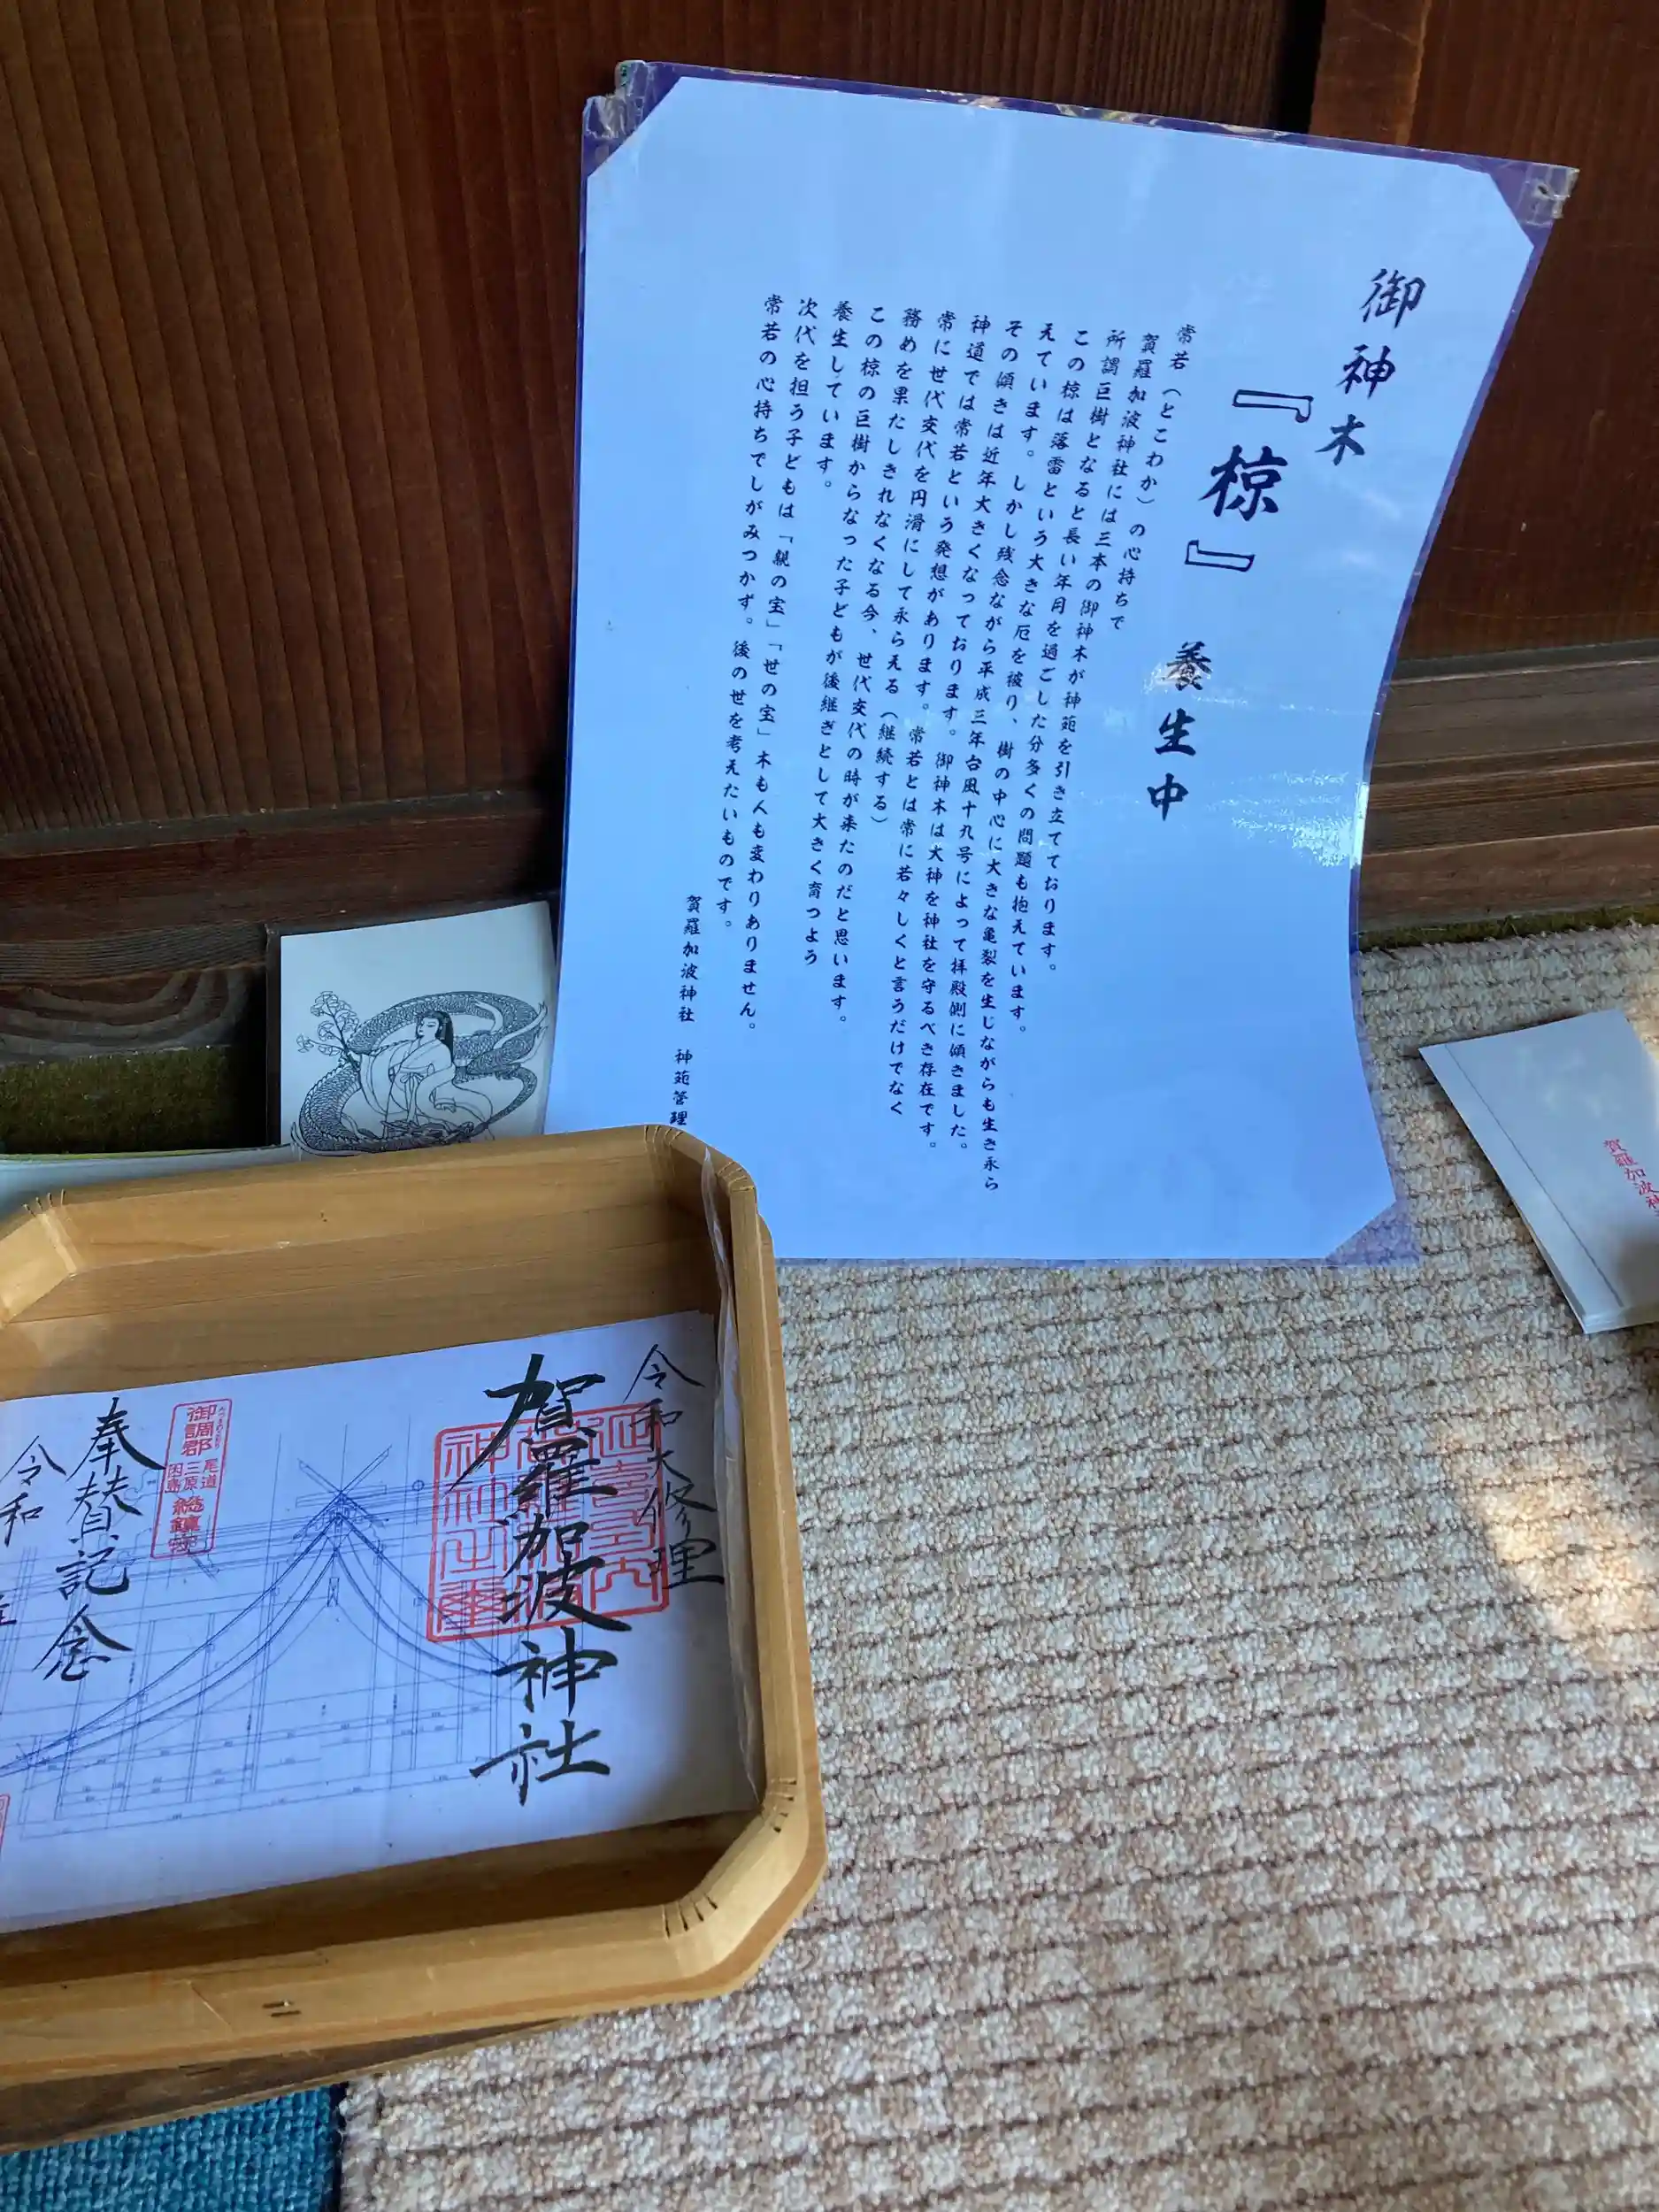 御神木
『椋』 養生中
常若（とこわか）の心持ちで
賀羅加波神社には三本の御神木が神苑を引き立てております。
所謂巨樹となると長い年月を過ごした分多くの問題も抱えています。
この椋は落雷という大きな厄を被り、樹の中心に大きな亀裂を生じながらも生き永ら
えています。しかし残念ながら平成三年台風十九号によって拝殿側に傾きました。
その傾きは近年大きくなっております。御神木は大神を神社を守るべき存在です。
神道では常若という発想があります。常若とは常に若々しくと言うだけでなく
常に世代交代を円滑にして永らえる（継続する）
務めを果たしきれなくなる今、世代交代の時が来たのだと思います。
この椋の巨樹からなった子どもが後継ぎとして大きく育つよう
養生しています。
次代を担う子どもは「親の宝」「世の宝」木も人も変わりありません。
常若の心持ちでしがみつかず。後の世を考えたいものです。
賀羅加波神社 神苑管理
令和大修理
賀羅加波神社
御調郡
尾道
三原
因島
総鎮守
奉賛記念
令和
賀羅加波神